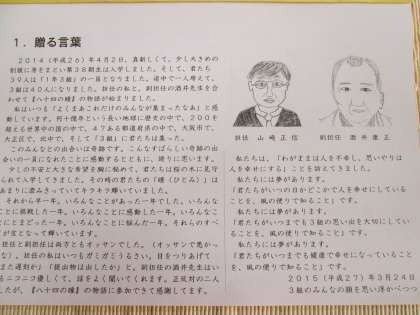 1．贈る言葉
2014（平成26）年4月2日、真新しくて、少し大きめの
制服に身をまとい第38期生は入学しました。そして、君たち
39人は「1年3組」の一員となりました。途中で一人増えて、
3組は40人になりました。担任の私と、副担任の酒井先生を合
わせて『八十四の瞳』の物語が始まりました。
私はいつも『よくまあこれだけのみんなが集まったなあ』と感
動しています。何十億年という長い地球に歴史の中で、200を
超える世界中の国の中で、47ある都道府県の中で、大阪市で、
大正区で、北中で、そして「3組」に君たちは集った。
このみんなとの出会いは奇跡です。こんなすばらしい奇跡の出
会いの一員になれたことに感動するとともに、誇りに思います。
少しの不安と大きな希望を胸に秘めて、君たちは桜の木に見守
られて入学してきました。その時の君たちの「瞳（ひとみ）」は
あまりに澄みきっていてキラキラ輝いていました。
それから早一年。いろんなことがあった一年でした。いろんな
ことに挑戦した一年。いろんなことに感動した一年。いろんなこ
とにとまどった一年。いろんなことに悩んだ一年。それらのすべ
てが宝となって輝いています。
担任と副担任は両方ともオッサンでした。（オッサンで悪かっ
な）。担任の私はいつもガミガミうるさい。目をつりあげて
また遅刻か」「提出物は出したか」と。副担任の酒井先生はい
ニコニコ優しくて、話をよく聞いてくれます。正反対の二人
したが、『八十四の瞳』の物語に参加できて感謝してます。
担任　山崎正信
副担任　酒井康正
私たちは、「わがままは人を不幸し、思いやりは
人を幸せにする」ことを訪えてきました。
私たちには夢があります。
「君たちがいつの日かどこかで人を幸せにしている
ことを、風の便りで知ること」です。
私たちには夢があります。
「君たちがいつまでも3組の思い出を大切にしてい
ることを、風の便りで知ること」です。
私たちには夢があります。
「君たちがいつまでも健康で幸せになっていること
を、風の便りで知ること」です。
2015（平成27）年3月24日
3組のみんなの顔を思い浮かべつつ